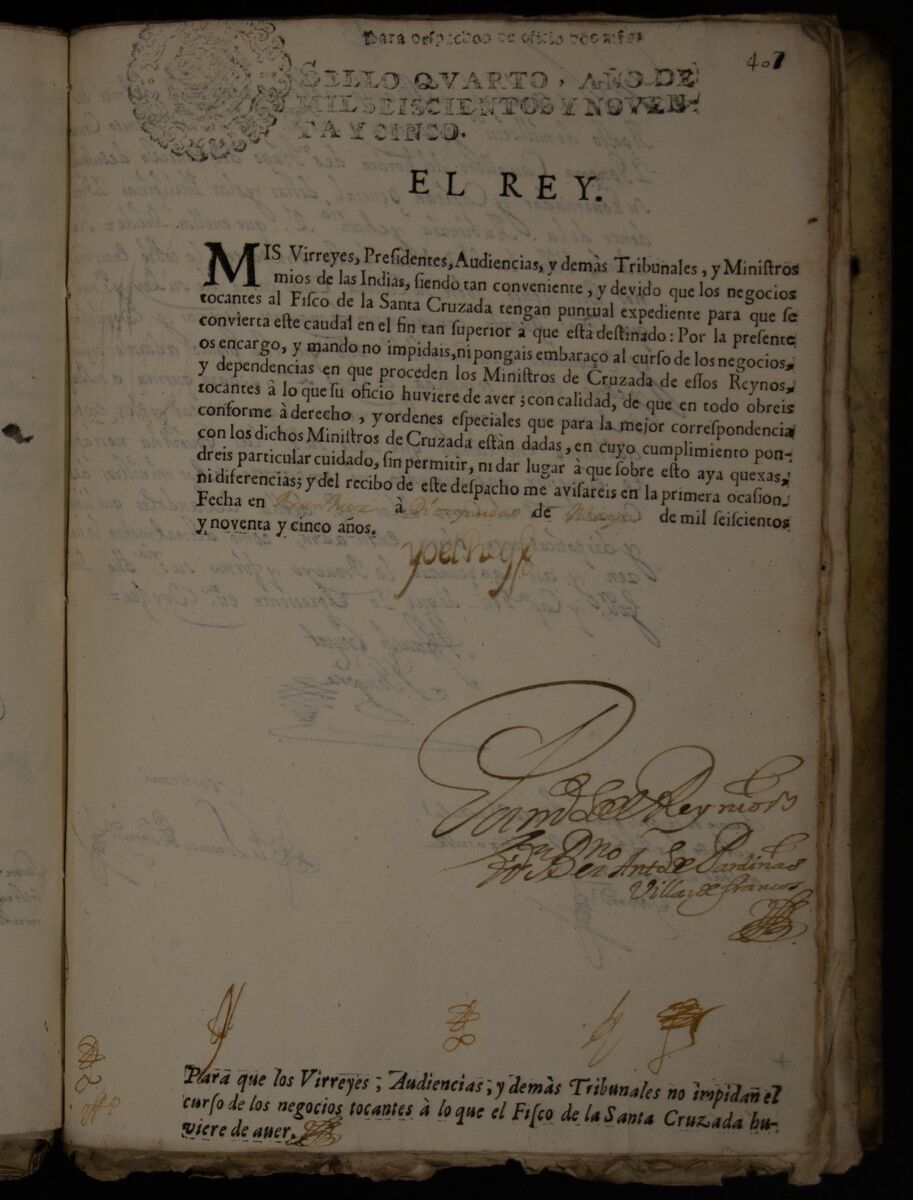 Para despachos de oficio dos mrs.
407
SELLO QVARTO, AÑO DE
MIL SEISCIENTOS Y NOVEN-
TA Y CINCO.
EL REY.
MIS Virreyes, Presidentes, Audiencias, y demàs Tribunales, y Ministros
mios de las Indias, siendo tan conveniente, y devido que los negocios
tocantes al Fisco de la Santa Cruzada tengan puntual expediente para que se
convierta este caudal en el fin tan superior à que està destinado: Por la presente
os encargo, y mando no impidais, ni pongais embaraço al curso de los negocios,
y dependencias en que proceden los Ministros de Cruzada de essos Reynos,
tocantes à lo que su oficio huviere de aver; con calidad, de que en todo obreis
conforme à derecho, y ordenes especiales que para la mejor correspondencia
con los dichos Ministros de Cruzada estàn dadas, en cuyo cumplimiento pon-
dreis particular cuidado, sin permitir, ni dar lugar à que sobre esto aya quexas,
ni diferencias; y del recibo de este despacho me avisareis en la primera ocasion.
Fecha en à de Mayo de mil seiscientos
y noventa y cinco años.
Yo el Rey
Por mdo del Rey nro sr
Dn Berno Anto de Pardiñas
Villar de francos
Para que los Virreyes; Audiencias; y demàs Tribunales no impidan el
curso de los negocios tocantes à lo que el Fisco de la Santa Cruzada hu-
viere de aver.